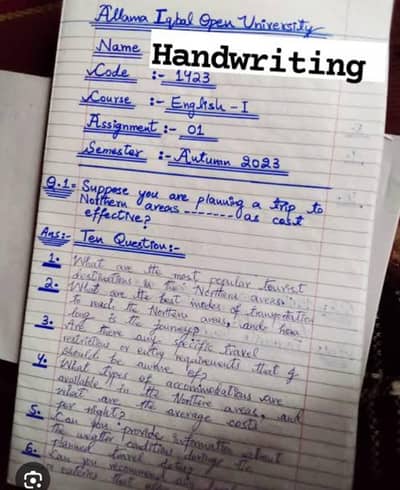 Allama Iqbal Open University
Name Handwriting
Code :- 1423
Course :- English - I
Assignment :- 01
Semester :- Autumn 2023
Q.1:- Suppose you are planning a trip to
Northern areas ------- as cost
effective?
Ans:- Ten Question:-
1. What are the most popular tourist
destinations in the Northern areas
2. What are the best modes of transportation
to reach the Northern areas, and how
long is the journey?
3. Are there any specific travel
restriction or entry requirements that I
should be aware of?
4. What types of accommodations are
available in the Northern areas, and
what are the average costs
per night?
5. Can you provide information about
the weather condition during the
planned travel dates?
6. Can you recommend any
or eateries that